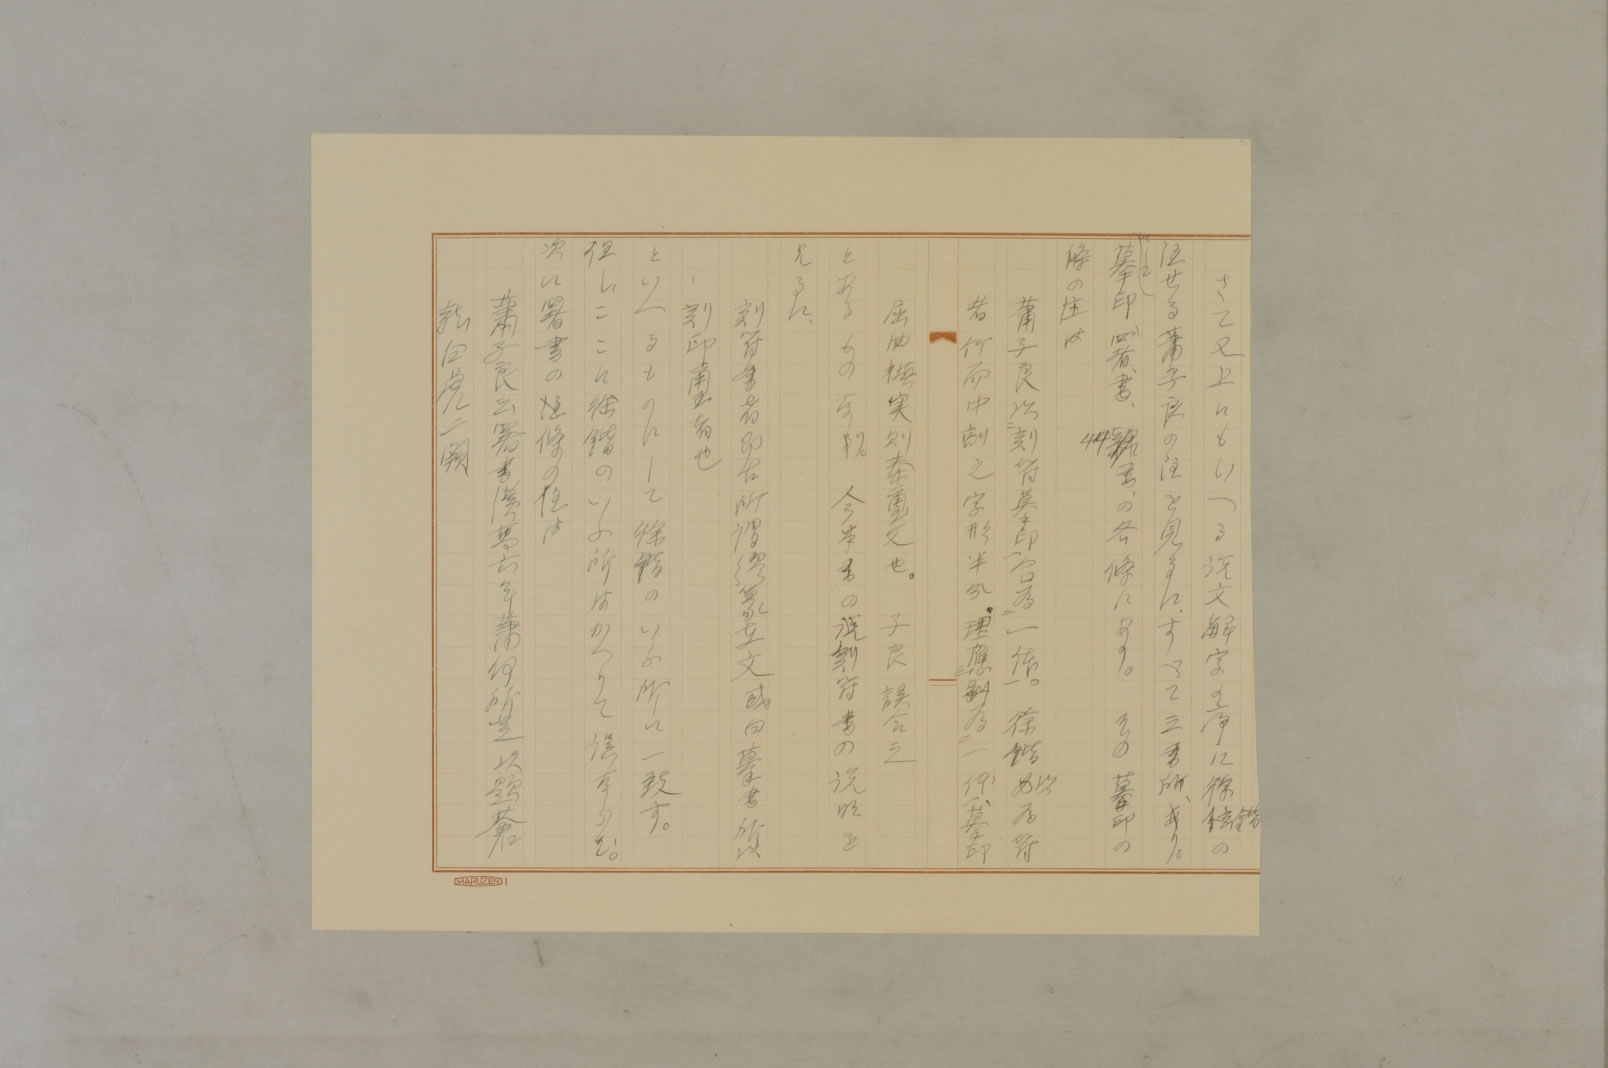 さて又上にもいへる説文解字の序に徐鍇の
注せる蕭子良の注を見るに、すべて三ヶ所あり。
そして
摹印 署書、の各條にあり。その摹印の
條の注は
蕭子良以刻符摹印合為一体。徐鍇以為符
者竹而中剖之字形半分。理應別為一体、摹印
屈曲塡実則秦璽文也。子良誤合之
とあるものなり。今本書の刻符書の説明を
見るに、
刻符書者即古所謂繆篆之文或曰摹書所以
刻印璽者也
といへるものにして徐鍇のいふ所に一致す。
但しここに徐鍇のいふ所はかへりて誤ならむ。
次に署書の條の注は
蕭子良云署書漢高六年蕭何所定以題蒼
龍白虎二闕
MARUZEN